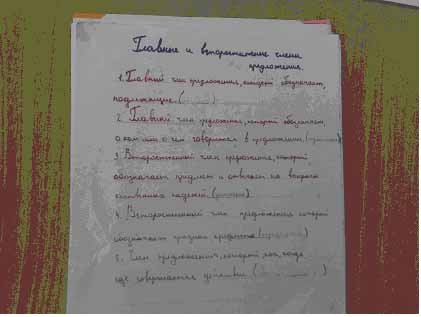 Главные и второстепенные члены
предложения.
1. Главный член предложения, который обозначает,
подлежащие. (
2. Главный член предложения, который обозначает,
о ком или о чем говорится в предложении. (
3. Второстепенный член предложения, который
обозначает предмет и отвечает на вопросы
падежей. (
4. Второстепенный член предложения который
обозначает признак предмета (
5. Член предложения, который как, когда
где совершается действие. (